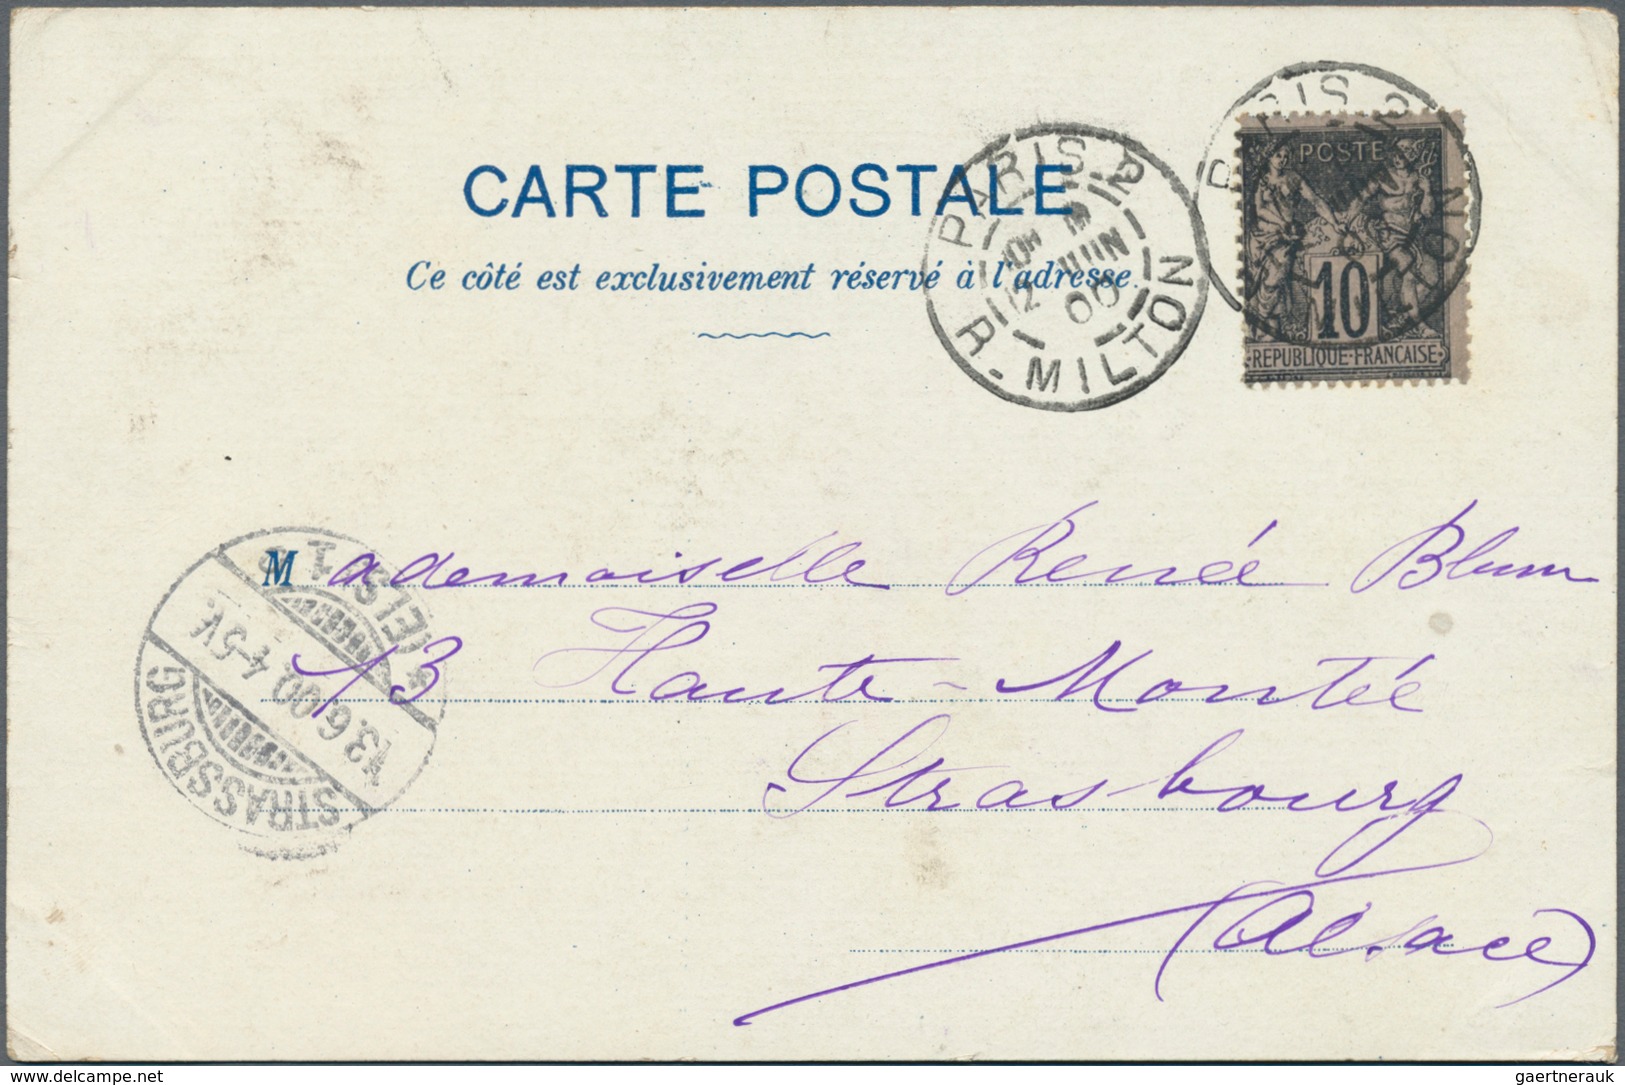 CARTE POSTALE
Ce côté est exclusivement réservé à l'adresse.
PARIS. 2
12 JUIN 00
R. MILTON
POSTE
10
REPUBLIQUE·FRANCAISE
Mademoiselle Renée Blum
13 Haute-Montée
Strasbourg
(Alsace)
STRASSBURG
13.6.00. 4-5V.
www.delcampe.net
gaertnerauk